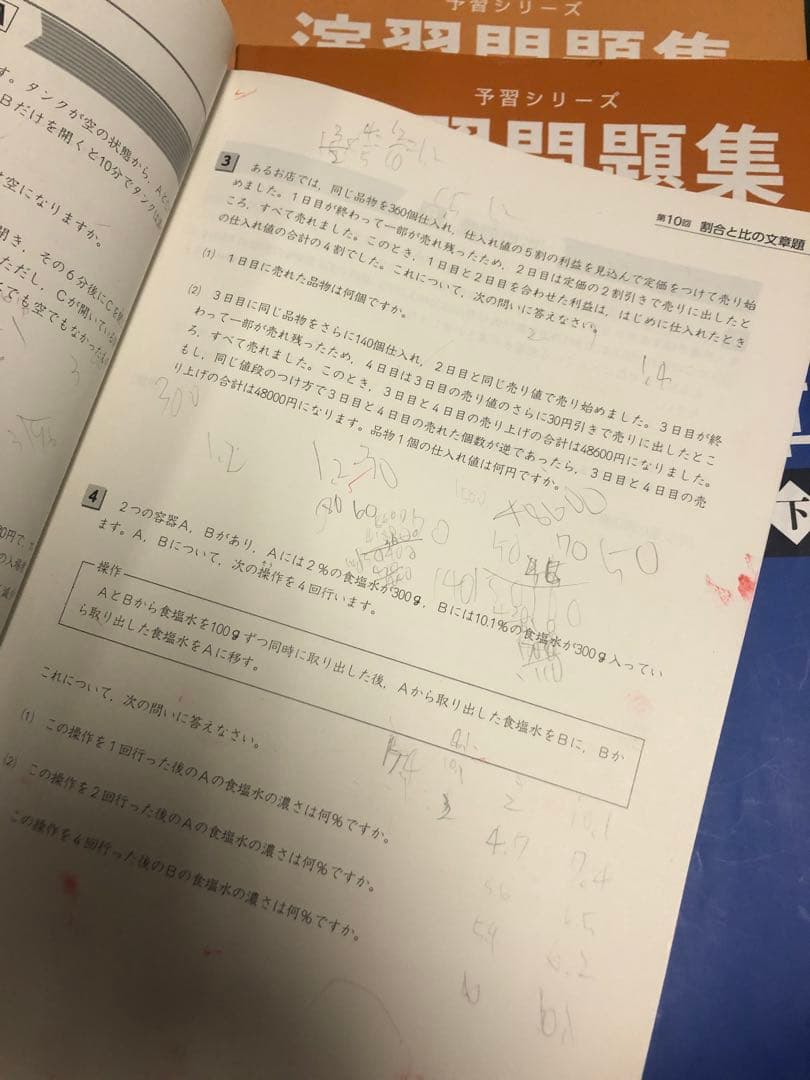 予習シリーズ
演習問題集
予習シリーズ
習問題集
第10回 割合と比の文章題
す。タンクが空の状態から，Aと
Bだけを開くと10分でタンクは
は空になりますか。
開き，その6分後にCを
ただし，Cが開いている
3 あるお店では，同じ品物を360個仕入れ，仕入れ値の5割の利益を見込んで定価をつけて売り始
めました。1日目が終わって一部が売れ残ったため，2日目は定価の2割引きで売りに出したと
ころ，すべて売れました。このとき，1日目と2日目を合わせた利益は，はじめに仕入れたとき
の仕入れ値の合計の4割でした。これについて，次の問いに答えなさい。
(1) 1日目に売れた品物は何個ですか。
(2) 3日目に同じ品物をさらに140個仕入れ，2日目と同じ売り値で売り始めました。3日目が終
わって一部が売れ残ったため，4日目は3日目の売り値のさらに30円引きで売りに出したとこ
ろ，すべて売れました。このとき，3日目と4日目の売り上げの合計は48600円になりました。
もし，同じ値段のつけ方で3日目と4日目の売れた個数が逆であったら，3日目と4日目の売
り上げの合計は48000円になります。品物1個の仕入れ値は何円ですか。
300
1.2
1.4
48600
70 50
4 2つの容器A，Bがあり，Aには2％の食塩水が300g，Bには10.1％の食塩水が300g入ってい
ます。A，Bについて，次の操作を4回行います。
操作
AとBから食塩水を100gずつ同時に取り出した後，Aから取り出した食塩水をBに，Bか
ら取り出した食塩水をAに移す。
これについて，次の問いに答えなさい。
(1) この操作を1回行った後のAの食塩水の濃さは何％ですか。
(2) この操作を2回行った後のAの食塩水の濃さは何％ですか。
この操作を4回行った後のBの食塩水の濃さは何％ですか。
2 10.1
4.7 7.4
5.6 6.5
5.9 6.2
6 6.1
下